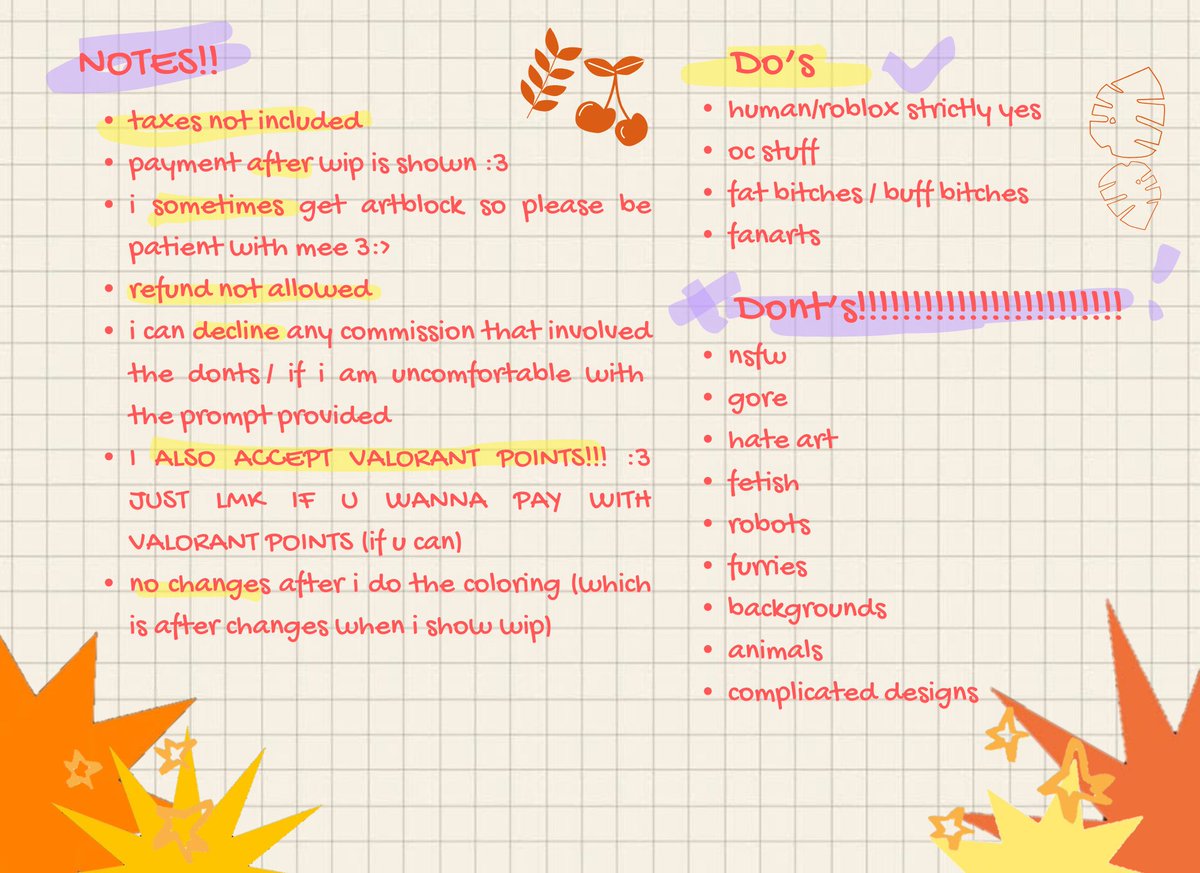 NOTES!!
• taxes not included
• payment after wip is shown :3
• i sometimes get artblock so please be
patient with mee 3:>
• refund not allowed
• i can decline any commission that involved
the donts / if i am uncomfortable with
the prompt provided
• I ALSO ACCEPT VALORANT POINTS!!! :3
JUST LMK IF U WANNA PAY WITH
VALORANT POINTS (if u can)
• no changes after i do the coloring (which
is after changes when i show wip)
Do's
• human/roblox strictly yes
• oc stuff
• fat bitches / buff bitches
• fanarts
Dont's!!!!!!!!!!!!!!!!!!!!!!!!
• nsfw
• gore
• hate art
• fetish
• robots
• furries
• backgrounds
• animals
• complicated designs